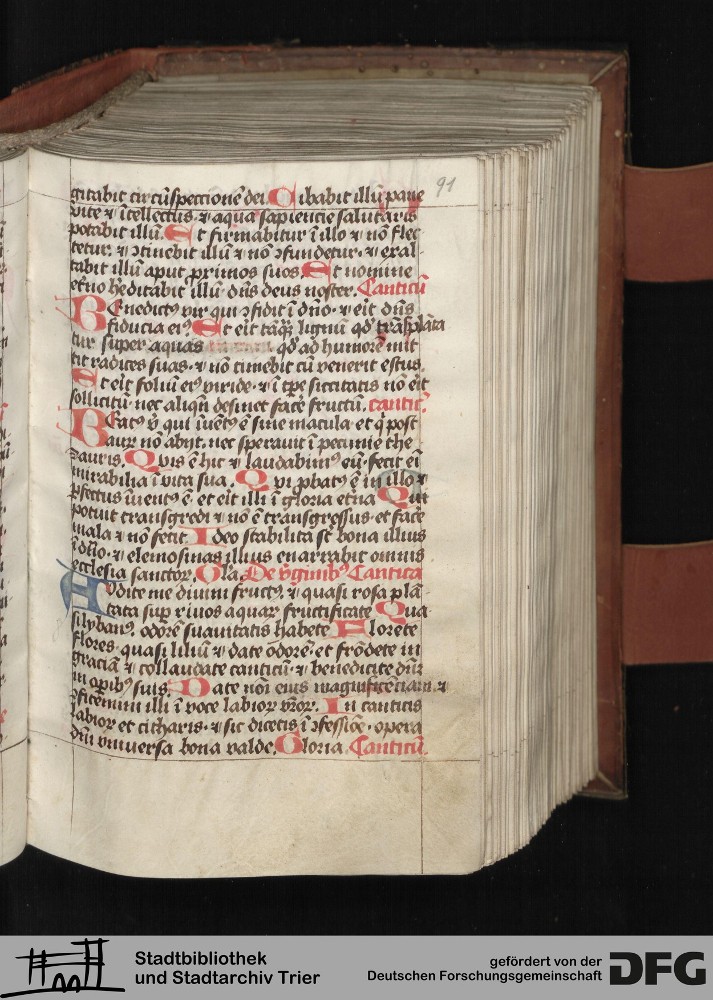 91
gitabit circūspectionē dei. Cibabit illū pane
vite ⁊ ītellectus. ⁊ aqua sapientie salutaris
potabit illū. Et firmabitur ī illo ⁊ nō flec
tetur. ⁊ ↄtinebit illū ⁊ nō ↄfundetur. ⁊ exal
tabit illū aput primos suos. Et nomine
et̄no heditabit illū dn̄s deus noster. Canticū
BEnedictꝰ vir qui ↄfidit ī dn̄o. ⁊ eit dn̄s
fiducia eiꝰ. Et eit tāqȝ lignū qd̓ trāsplāta
tur super aquas qd̓ ad humorē mit
tit radices suas. ⁊ nō timebit cū venerit estus.
Et eit foliū eiꝰ viride. ⁊ ī tp̄e siccitatis nō eit
sollicitū. nec aliqn̄ desinet facē fructū. cantic̄.
BEatꝰ v̓ qui īuētꝰ ē sine macula. et q̓ post
aurū nō abijt. nec speravit ī pecunie the
zauris. Quis ē hic ⁊ laudabimꝰ eū. fecit eī
mirabilia ī vita sua. Qui p̄batꝰ ē in illo ⁊
ꝑfectus īuentꝰ ē. et eit illi ī gloria et̄na Qui
potuit transgredi ⁊ nō ē transgressus. et facē
mala ⁊ nō fecit. Ideo stabilita st̄ bona illius
ī dn̄o. ⁊ elemosinas illius enarrabit omnis
ecclesia sanctoꝝ. Gl̄a. De v̓ginibꝰ Cantica
AUdite me divini fructꝰ. ⁊ quasi rosa plā
tata suꝑ rivos aquaꝝ fructificate Qua
si lybanꝰ. odorē suavitatis habete. Florete
flores. quasi liliū ⁊ date odorē. et frōdete in
graciā ⁊ collaudate canticū. ⁊ benedicite dn̄m
in oꝑibꝰ suis. Date nōi eius magnificenciam. ⁊
ↄfitemini illi ī voce labioꝝ vr̄oꝝ. In canticis
labioꝝ et citharis. ⁊ sic dicetis ī ↄfessiōe. opera
dn̄i vniversa bona valde. Gloria. Canticū.
Stadtbibliothek
und Stadtarchiv Trier
gefördert von der
Deutschen Forschungsgemeinschaft
DFG